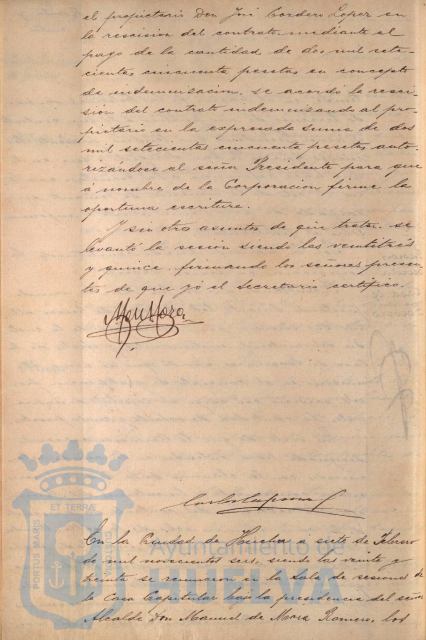 el propietario Don José Cordero Lopez en
la rescision del contrato mediante el
pago de la cantidad de dos mil sete-
cientas cincuenta pesetas en concepto
de indemnizacion, se acordó la resci-
sion del contrato indemnizando al pro-
pietario en la expresada suma de dos
mil setecientas cincuenta pesetas, auto-
rizándose al señor Presidente para que
á nombre de la Corporacion firme la
oportuna escritura.
Y sin otros asuntos de que tratar, se
levantó la sesión siendo las veintitres
y quince, firmando los señores presen-
tes de que yó el Secretario certifico.
En la Ciudad de Huelva á siete de Febrero
de mil novecientos seis, siendo las veinte y
treinta se reunieron en la Sala de sesiones de
la Casa Capitular bajo la presidencia del señor
Alcalde Don Manuel de Mora Romero, los
Ayuntamiento de
HUELVA
PORTUS MARIS
ET TERRÆ
CUSTODIA